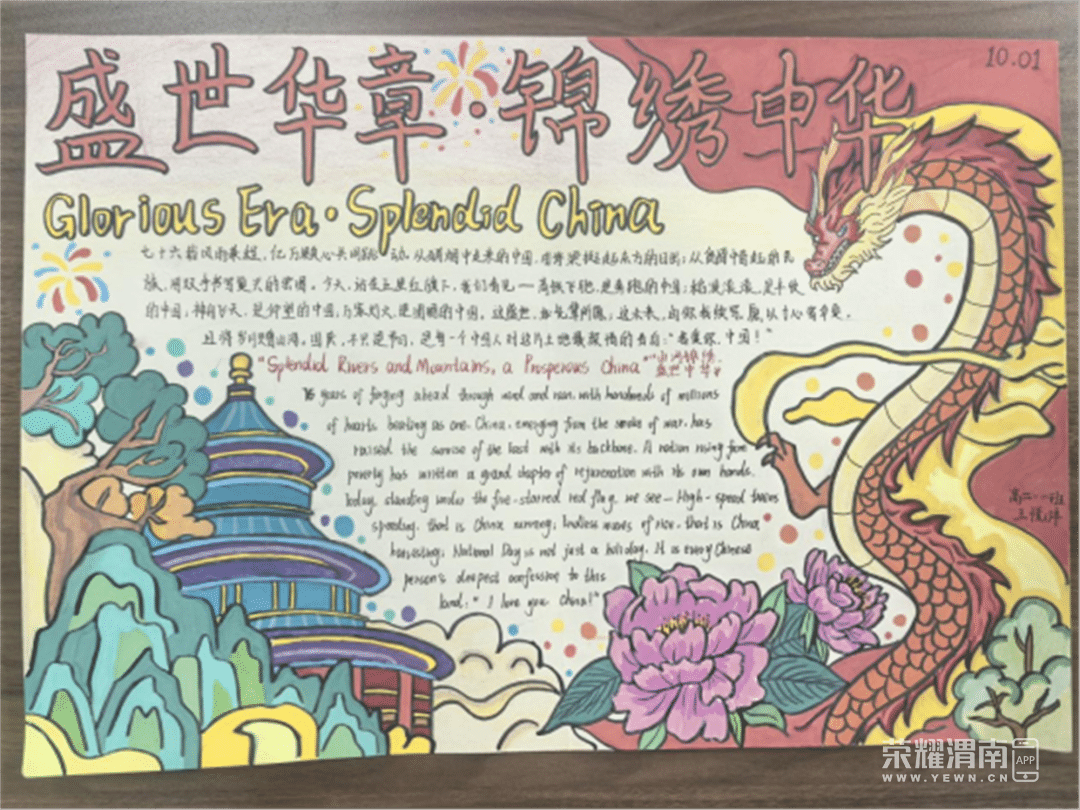 盛世华章·锦绣中华
10.01
Glorious Era·Splendid China
七十六载风雨兼程，亿万颗心共同跳动。从硝烟中走来的中国，用脊梁托起东方的日出；从贫困中奋起的民
族，用双手书写复兴的宏图。今天，站在五星红旗下，我们看见——高铁飞驰，是奔跑的中国；稻浪滚滚，是丰收
的中国；神舟飞天，是仰望的中国；万家灯火，是团圆的中国。这盛世，如您所愿；这未来，由你我续写。
国庆，不只是节日，是每一个中国人对这片土地最深情的告白："我爱你，中国！"
"Splendid Rivers and Mountains, a Prosperous China" "山河锦绣，
盛世中华"
76 years of forging ahead through wind and rain, with hundreds of millions
of hearts beating as one. China, emerging from the smoke of war, has
raised the sunrise of the East with its backbone. A nation rising from
poverty has written a grand chapter of rejuvenation with its own hands.
Today, standing under the five-starred red flag, we see—High-speed trains
speeding, that is China running; Endless waves of rice, that is China
harvesting; National Day is not just a holiday. It is every Chinese
person's deepest confession to this
land: "I love you China!"
高二
班
王
荣耀渭南 APP
WWW.YEWN.CN